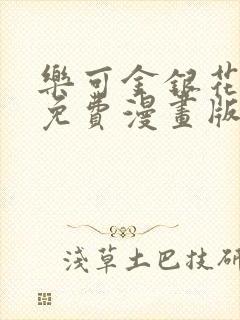 樂可金銀花
免費漫畫版
淺草土巴技研